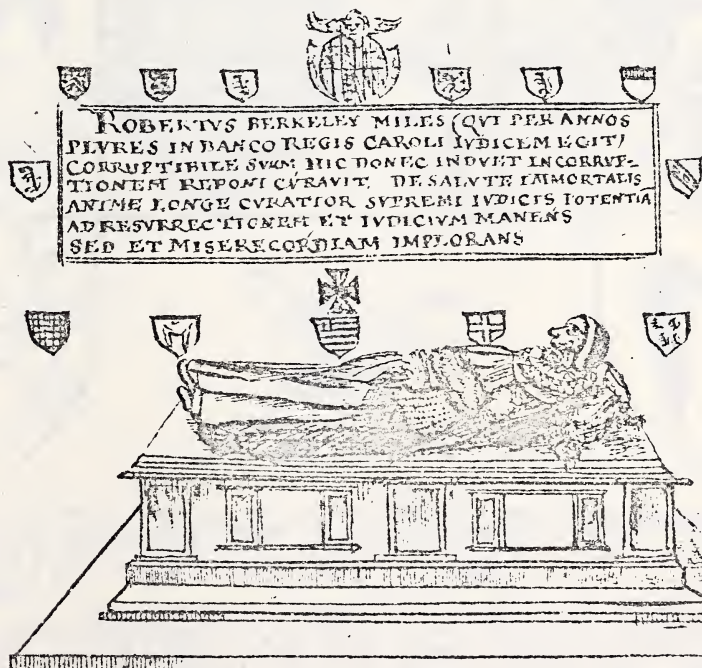 ROBERTVS BERKELEY MILES (QVI PER ANNOS
PLVRES IN BANCO REGIS CAROLI IVDICEM EGIT)
CORRVPTIBILE SVVM HIC DONEC INDVET INCORRVP-
TIONEM REPONI CVRAVIT. DE SALVTE IMMORTALIS
ANIME LONGE CVRATIOR SVPREMI IVDICIS POTENTIA
AD RESVRRECTIONEM ET IVDICIVM MANENS
SED ET MISERECORDIAM IMPLORANS